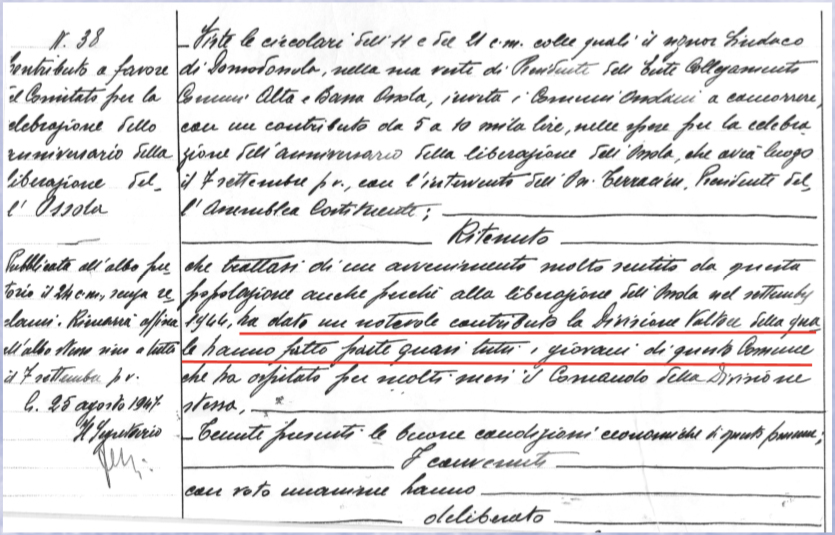 N. 38
Contributo a favore
il Comitato per la
celebrazione dello
anniversario della
liberazione del-
l'Ossola
Pubblicata all'albo pre-
torio il 24 c.m., senza re-
clami. Rimarrà affissa
all'albo stesso sino a tutto
il 7 settembre p.v.
lì, 25 agosto 1947.
Il Segretario
– Viste le circolari dell'11 e del 21 c.m. colle quali il signor Sindaco
di Domodossola, nella sua veste di Presidente dell'Ente Collegamento
Comuni Alta e Bassa Ossola, invita i Comuni Ossolani a concorrere,
con un contributo da 5 a 10 mila lire, nelle spese per la celebra-
zione dell'anniversario della liberazione dell'Ossola, che avrà luogo
il 7 settembre p.v., con l'intervento dell'On. Terracini, Presidente del-
l'Assemblea Costituente;
Ritenuto
che trattasi di un avvenimento molto sentito da questa
popolazione anche perchè alla liberazione dell'Ossola nel settembre
1944, ha dato un notevole contributo la Divisione Valtoce della qua
le hanno fatto parte quasi tutti i giovani di questo Comune
che ha ospitato per molti mesi il Comando della Divisione
stessa,
– Tenute presenti le buone condizioni economiche di questo Comune;
I convenuti
con voto unanime hanno
deliberato